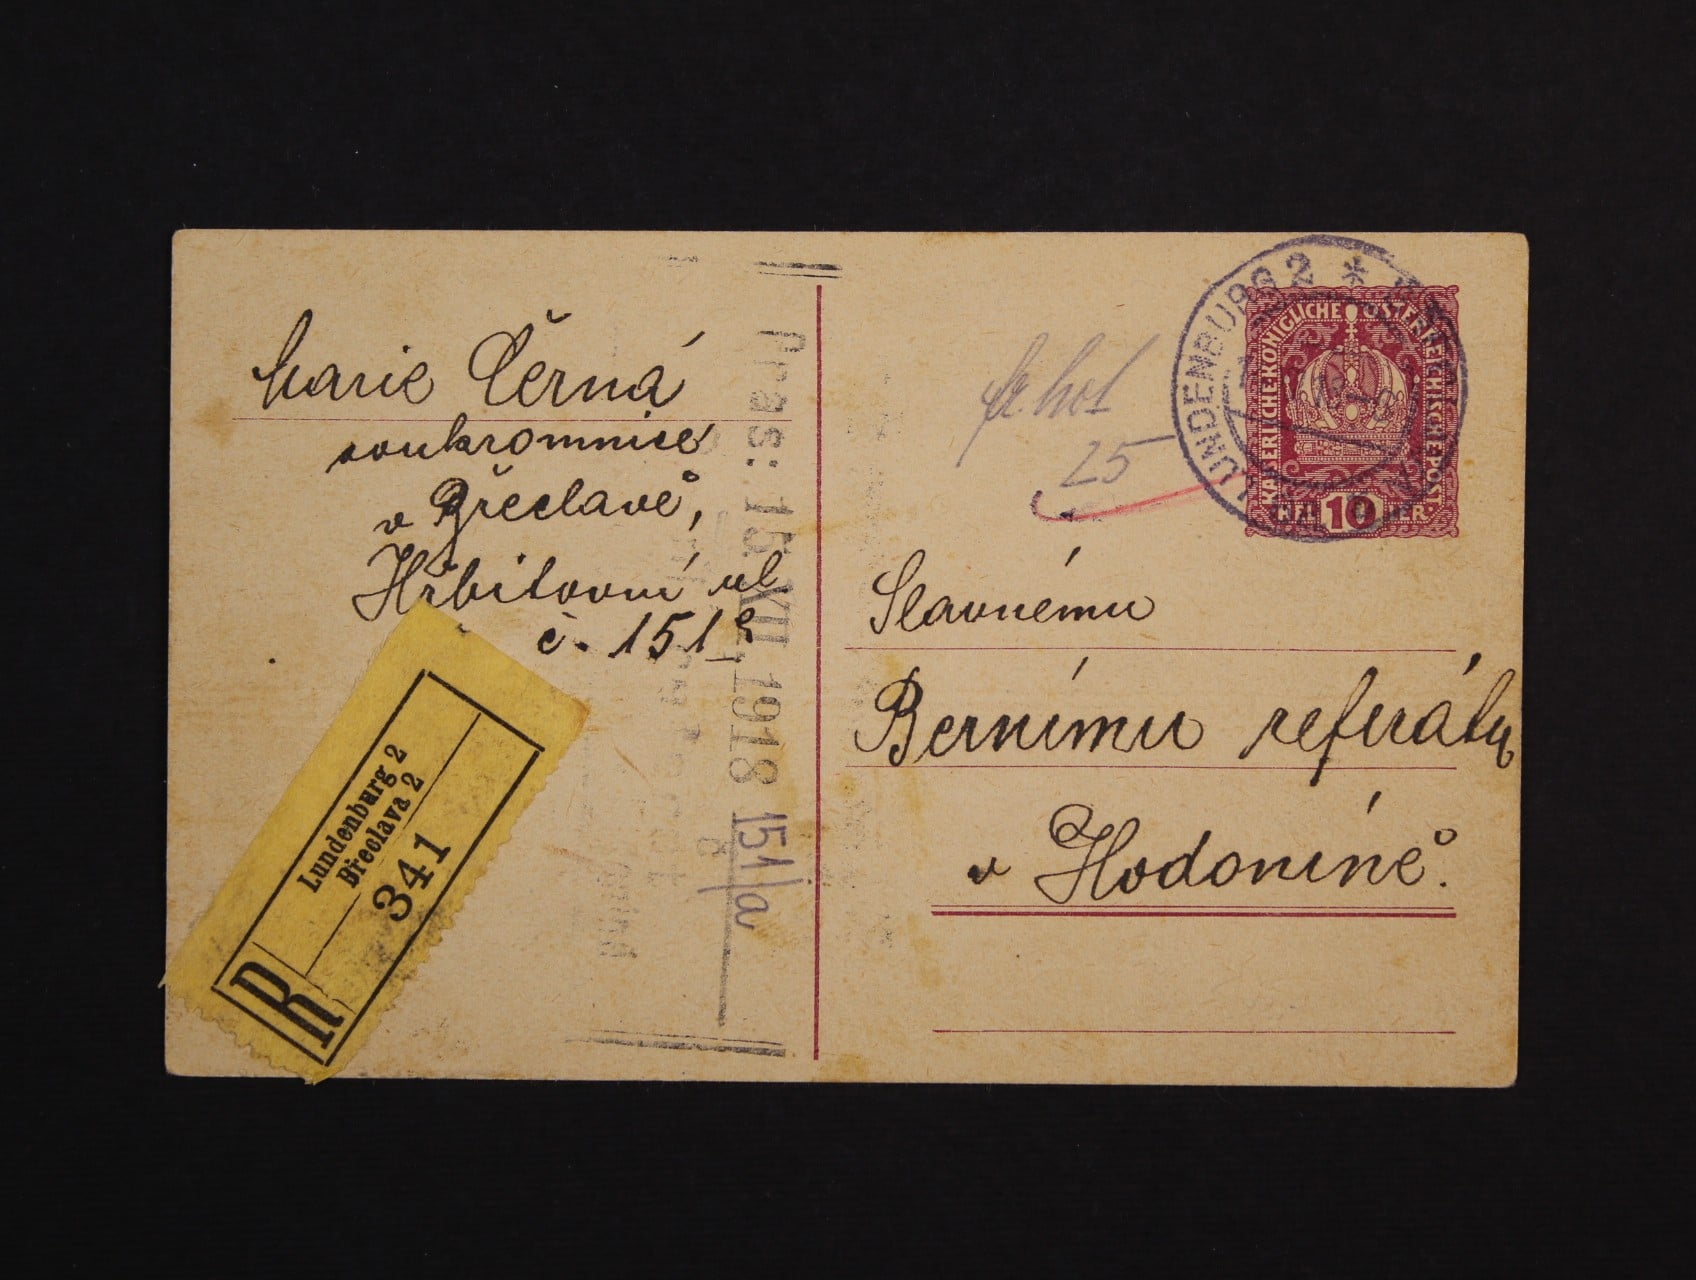 Marie Černá
soukromnice
v Břeclavě,
Hřbitovní ul.
č. 151
Lundenburg 2
Břeclava 2
341
R
Praes: 15. XII. 1918
151/a
25
LUNDENBURG 2 *
KAISERLICHE KÖNIGLICHE ÖSTERREICHISCHE POST
10
HELLER
Slavnému
Bernímu referátu
v Hodoníně.